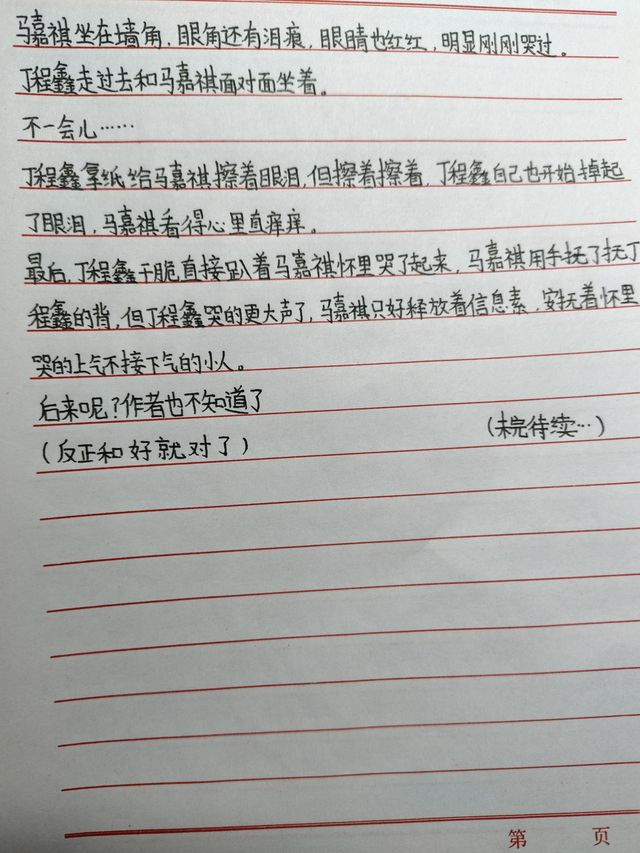 马嘉祺坐在墙角，眼角还有泪痕，眼睛也红红，明显刚刚哭过。
丁程鑫走过去和马嘉祺面对面坐着。
不一会儿……
丁程鑫拿纸给马嘉祺擦着眼泪，但擦着擦着，丁程鑫自己也开始掉起
了眼泪，马嘉祺看得心里直痒痒。
最后，丁程鑫干脆直接趴着马嘉祺怀里哭了起来，马嘉祺用手抚了抚丁
程鑫的背，但丁程鑫哭的更大声了，马嘉祺只好释放着信息素，安抚着怀里
哭的上气不接下气的小人。
后来呢？作者也不知道了
（反正和好就对了）
（未完待续…）
第 页